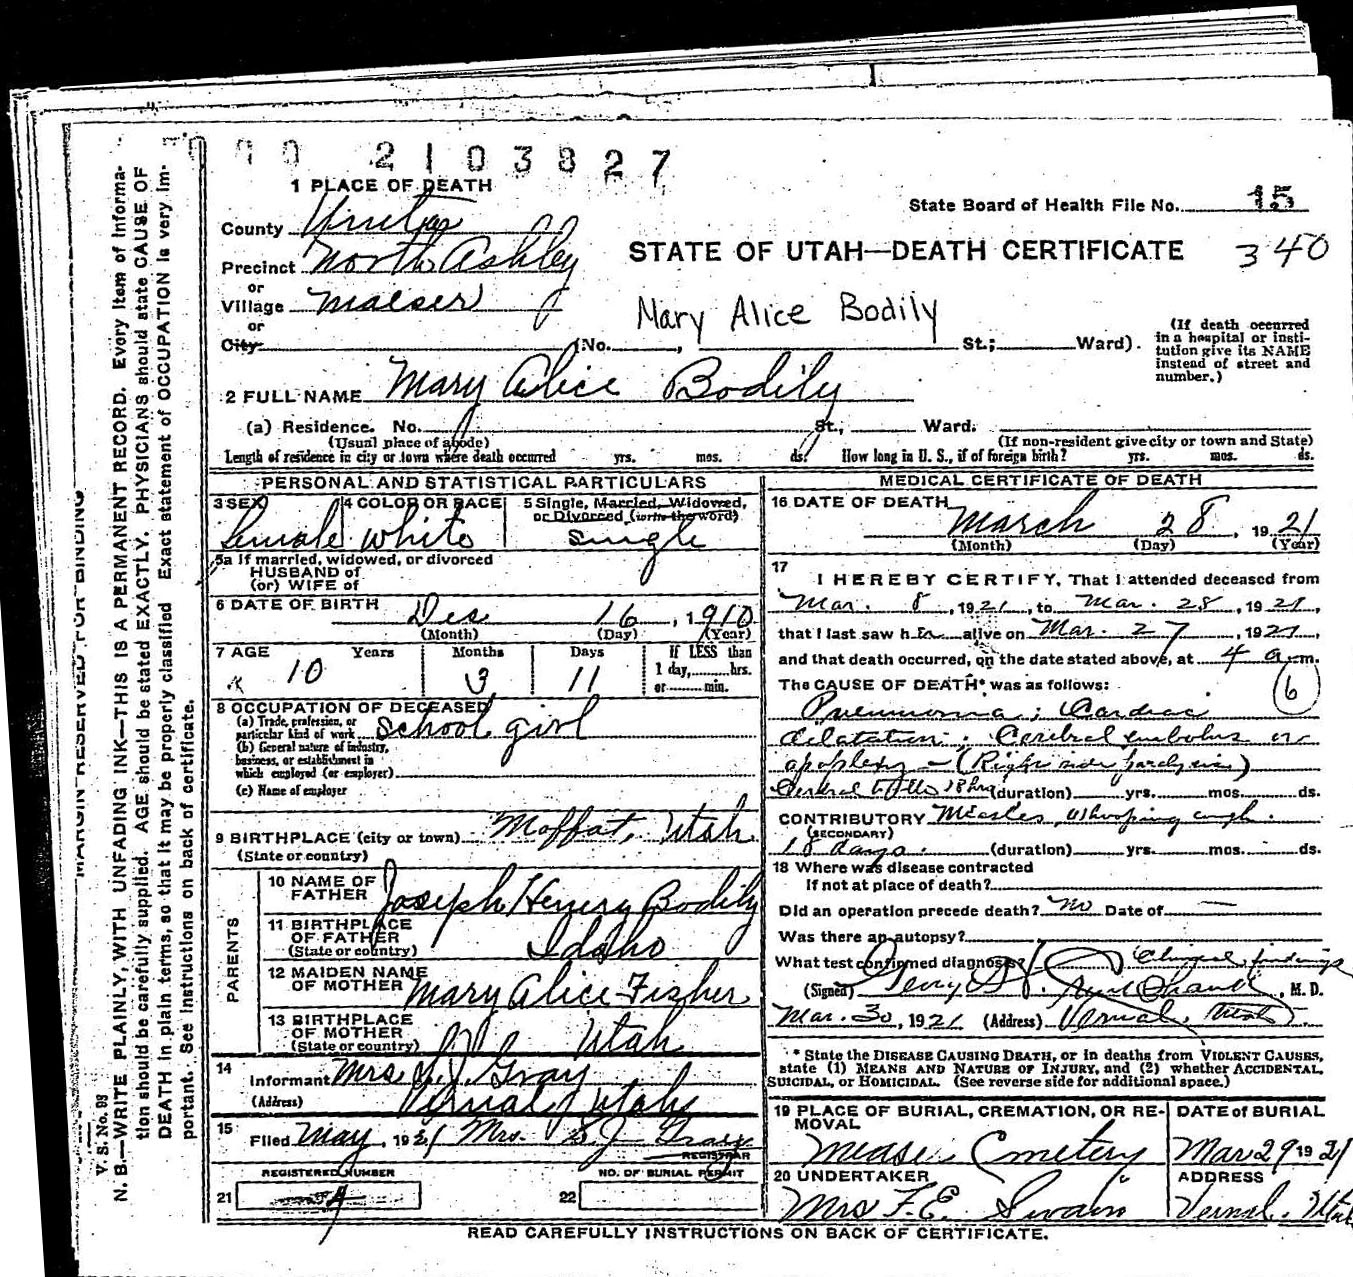 2103827
1 PLACE OF DEATH
State Board of Health File No. 15
340
County Uintah
STATE OF UTAH—DEATH CERTIFICATE
Precinct North Ashley
or
Village Maeser
or
City (No. , St.; Ward).
Mary Alice Bodily
(If death occurred in a hospital or institution give its NAME instead of street and number.)
2 FULL NAME Mary Alice Bodily
(a) Residence. No. St., Ward.
(Usual place of abode) (If non-resident give city or town and State)
Length of residence in city or town where death occurred yrs. mos. ds. How long in U. S., if of foreign birth? yrs. mos. ds.
PERSONAL AND STATISTICAL PARTICULARS
3 SEX Female
4 COLOR OR RACE White
5 Single, Married, Widowed, or Divorced (write the word) Single
5a If married, widowed, or divorced
HUSBAND of
(or) WIFE of
6 DATE OF BIRTH Dec 16, 1910
(Month) (Day) (Year)
7 AGE Years Months Days If LESS than
10 3 11 1 day, hrs.
or min.
8 OCCUPATION OF DECEASED
(a) Trade, profession, or particular kind of work school girl
(b) General nature of industry, business, or establishment in which employed (or employer)
(c) Name of employer
9 BIRTHPLACE (city or town) Moffat, Utah
(State or country)
PARENTS
10 NAME OF FATHER Joseph Henery Bodily
11 BIRTHPLACE OF FATHER Idaho
(State or country)
12 MAIDEN NAME OF MOTHER Mary Alice Fisher
13 BIRTHPLACE OF MOTHER Utah
(State or country)
14 Informant Mrs S. J. Gray
(Address) Vernal Utah
15 Filed May, 1921 Mrs. S J Gray
REGISTRAR
REGISTERED NUMBER
NO. OF BURIAL PERMIT
21
22
MEDICAL CERTIFICATE OF DEATH
16 DATE OF DEATH
March 28, 1921
(Month) (Day) (Year)
17
I HEREBY CERTIFY, That I attended deceased from
Mar. 8, 1921, to Mar. 28, 1921,
that I last saw her alive on Mar. 27, 1921,
and that death occurred, on the date stated above, at 4 a.m.
The CAUSE OF DEATH* was as follows:
6
Pneumonia; Cardiac
dilatation; Cerebral embolus or
apoplexy - (Right side paralysis)
18 hrs (duration) yrs. mos. ds.
CONTRIBUTORY Measles, Whooping cough.
(SECONDARY)
18 days. (duration) yrs. mos. ds.
18 Where was disease contracted
if not at place of death?
Did an operation precede death? No Date of —
Was there an autopsy?
What test confirmed diagnosis? Clinical findings
(Signed) , M. D.
Mar. 30, 1921 (Address) Vernal, Utah
* State the DISEASE CAUSING DEATH, or in deaths from VIOLENT CAUSES,
state (1) MEANS AND NATURE OF INJURY, and (2) whether ACCIDENTAL,
SUICIDAL, or HOMICIDAL. (See reverse side for additional space.)
19 PLACE OF BURIAL, CREMATION, OR REMOVAL
DATE of BURIAL
Cemetery Mar 29 1921
20 UNDERTAKER
ADDRESS
Mrs F. E. Swain Vernal, Utah
READ CAREFULLY INSTRUCTIONS ON BACK OF CERTIFICATE.
MARGIN RESERVED FOR BINDING
V. S. No. 98
N. B.—WRITE PLAINLY, WITH UNFADING INK—THIS IS A PERMANENT RECORD. Every item of informa-
tion should be carefully supplied. AGE should be stated EXACTLY. PHYSICIANS should state CAUSE OF
DEATH in plain terms, so that it may be properly classified Exact statement of OCCUPATION is very im-
portant. See instructions on back of certificate.